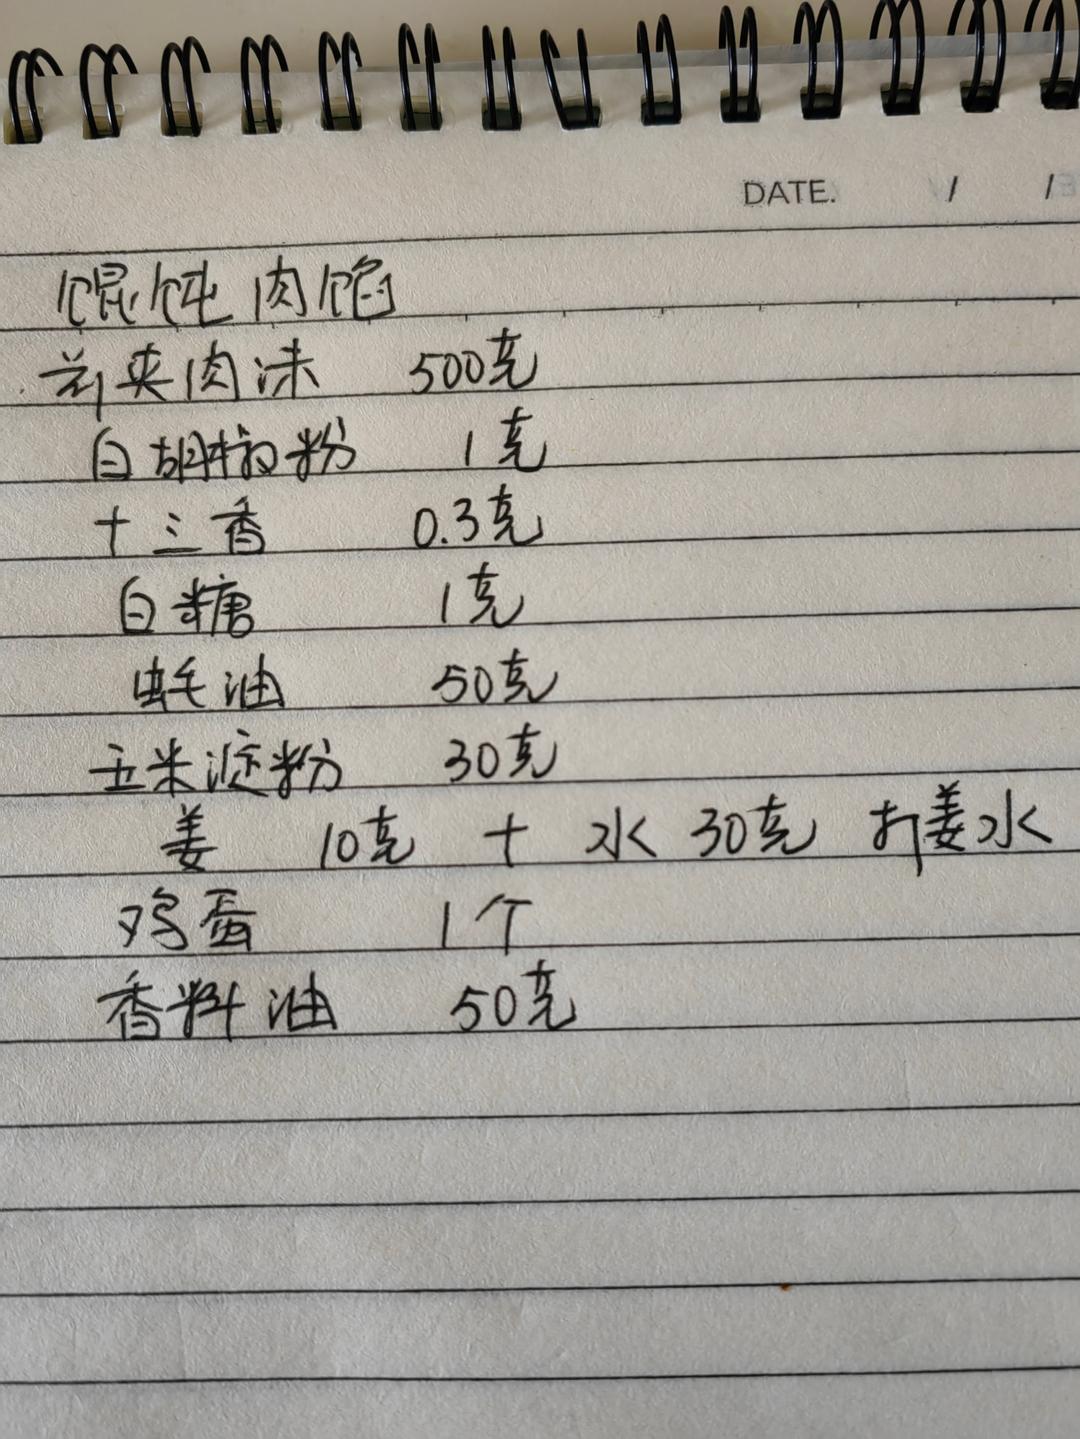 DATE. / /
馄饨肉馅
前夹肉沫 500克
白胡椒粉 1克
十三香 0.3克
白糖 1克
蚝油 50克
玉米淀粉 30克
姜 10克 + 水 30克 打姜水
鸡蛋 1个
香料油 50克